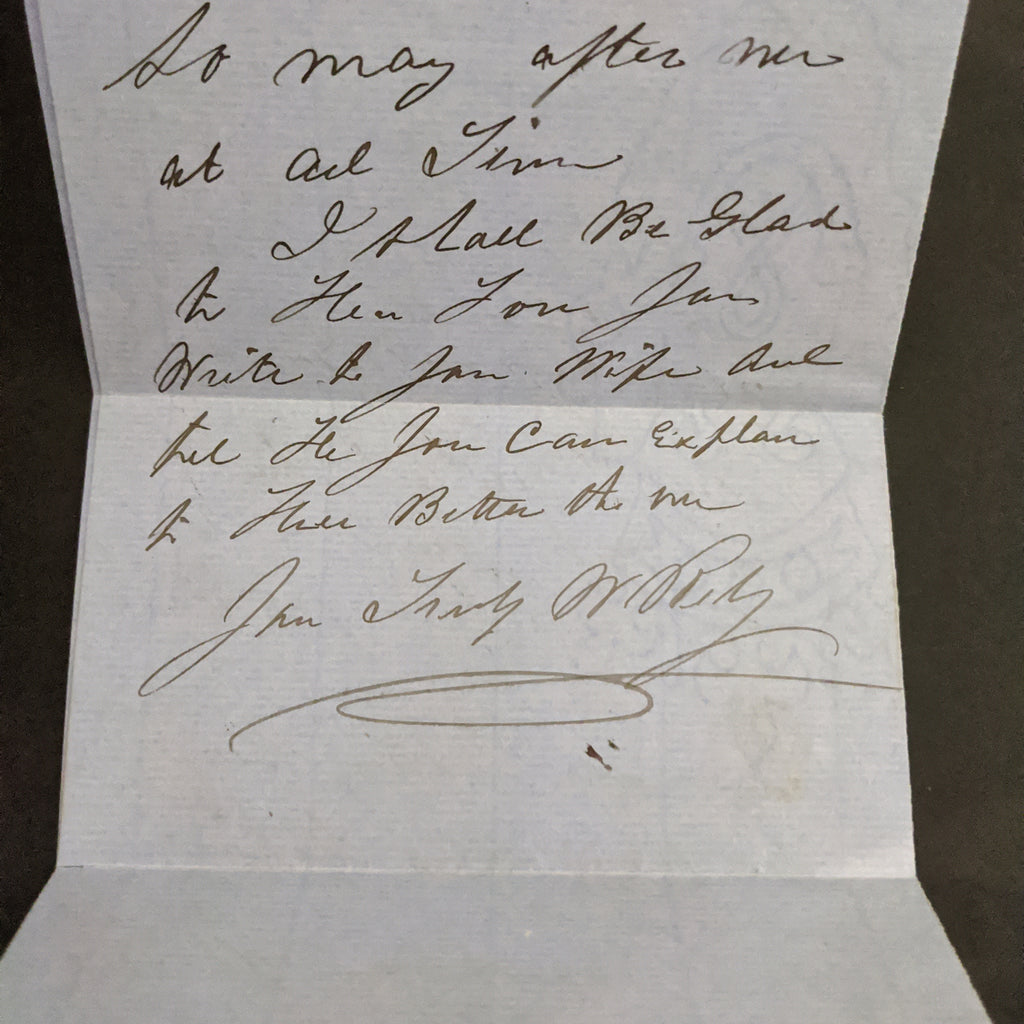 So may after me
at all Time
I shall Be Glad
to Hear From You
Write to you Wife and
tel He you Can Explan
to Her Better the me
You Truly W Rely